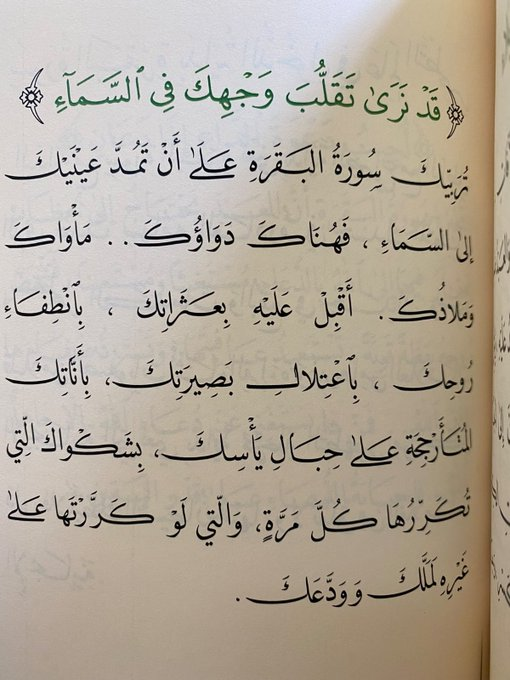 ﴿قَدْ نَرَىٰ تَقَلُّبَ وَجْهِكَ فِي السَّمَآءِ﴾
تُرَبِّيكَ سُورَةُ البَقَرَةِ عَلَىٰ أَنْ تَمُدَّ عَيْنَيْكَ
إِلىٰ السَّمَاءِ ، فَهُنَاكَ دَوَاؤُكَ .. مَأْوَاكَ
وَمَلَاذُكَ . أَقْبِلْ عَلَيْهِ بِعَثَرَاتِكَ ، بِٱنْطِفَاءِ
رُوحِكَ ، بِٱعْتِلَالِ بَصِيرَتِكَ، بِأَنَّاتِكَ
المُتَأَرْجِحَةِ عَلىٰ حِبَالِ يَأْسِكَ ، بِشَكْوَاكَ الَّتِي
تُكَرِّرُهَا كُلَّ مَرَّةٍ، وَالَّتِي لَوْ كَرَّرْتَهَا عَلىٰ
غَيْرِهِ لَمَلَّكَ وَوَدَّعَكَ .